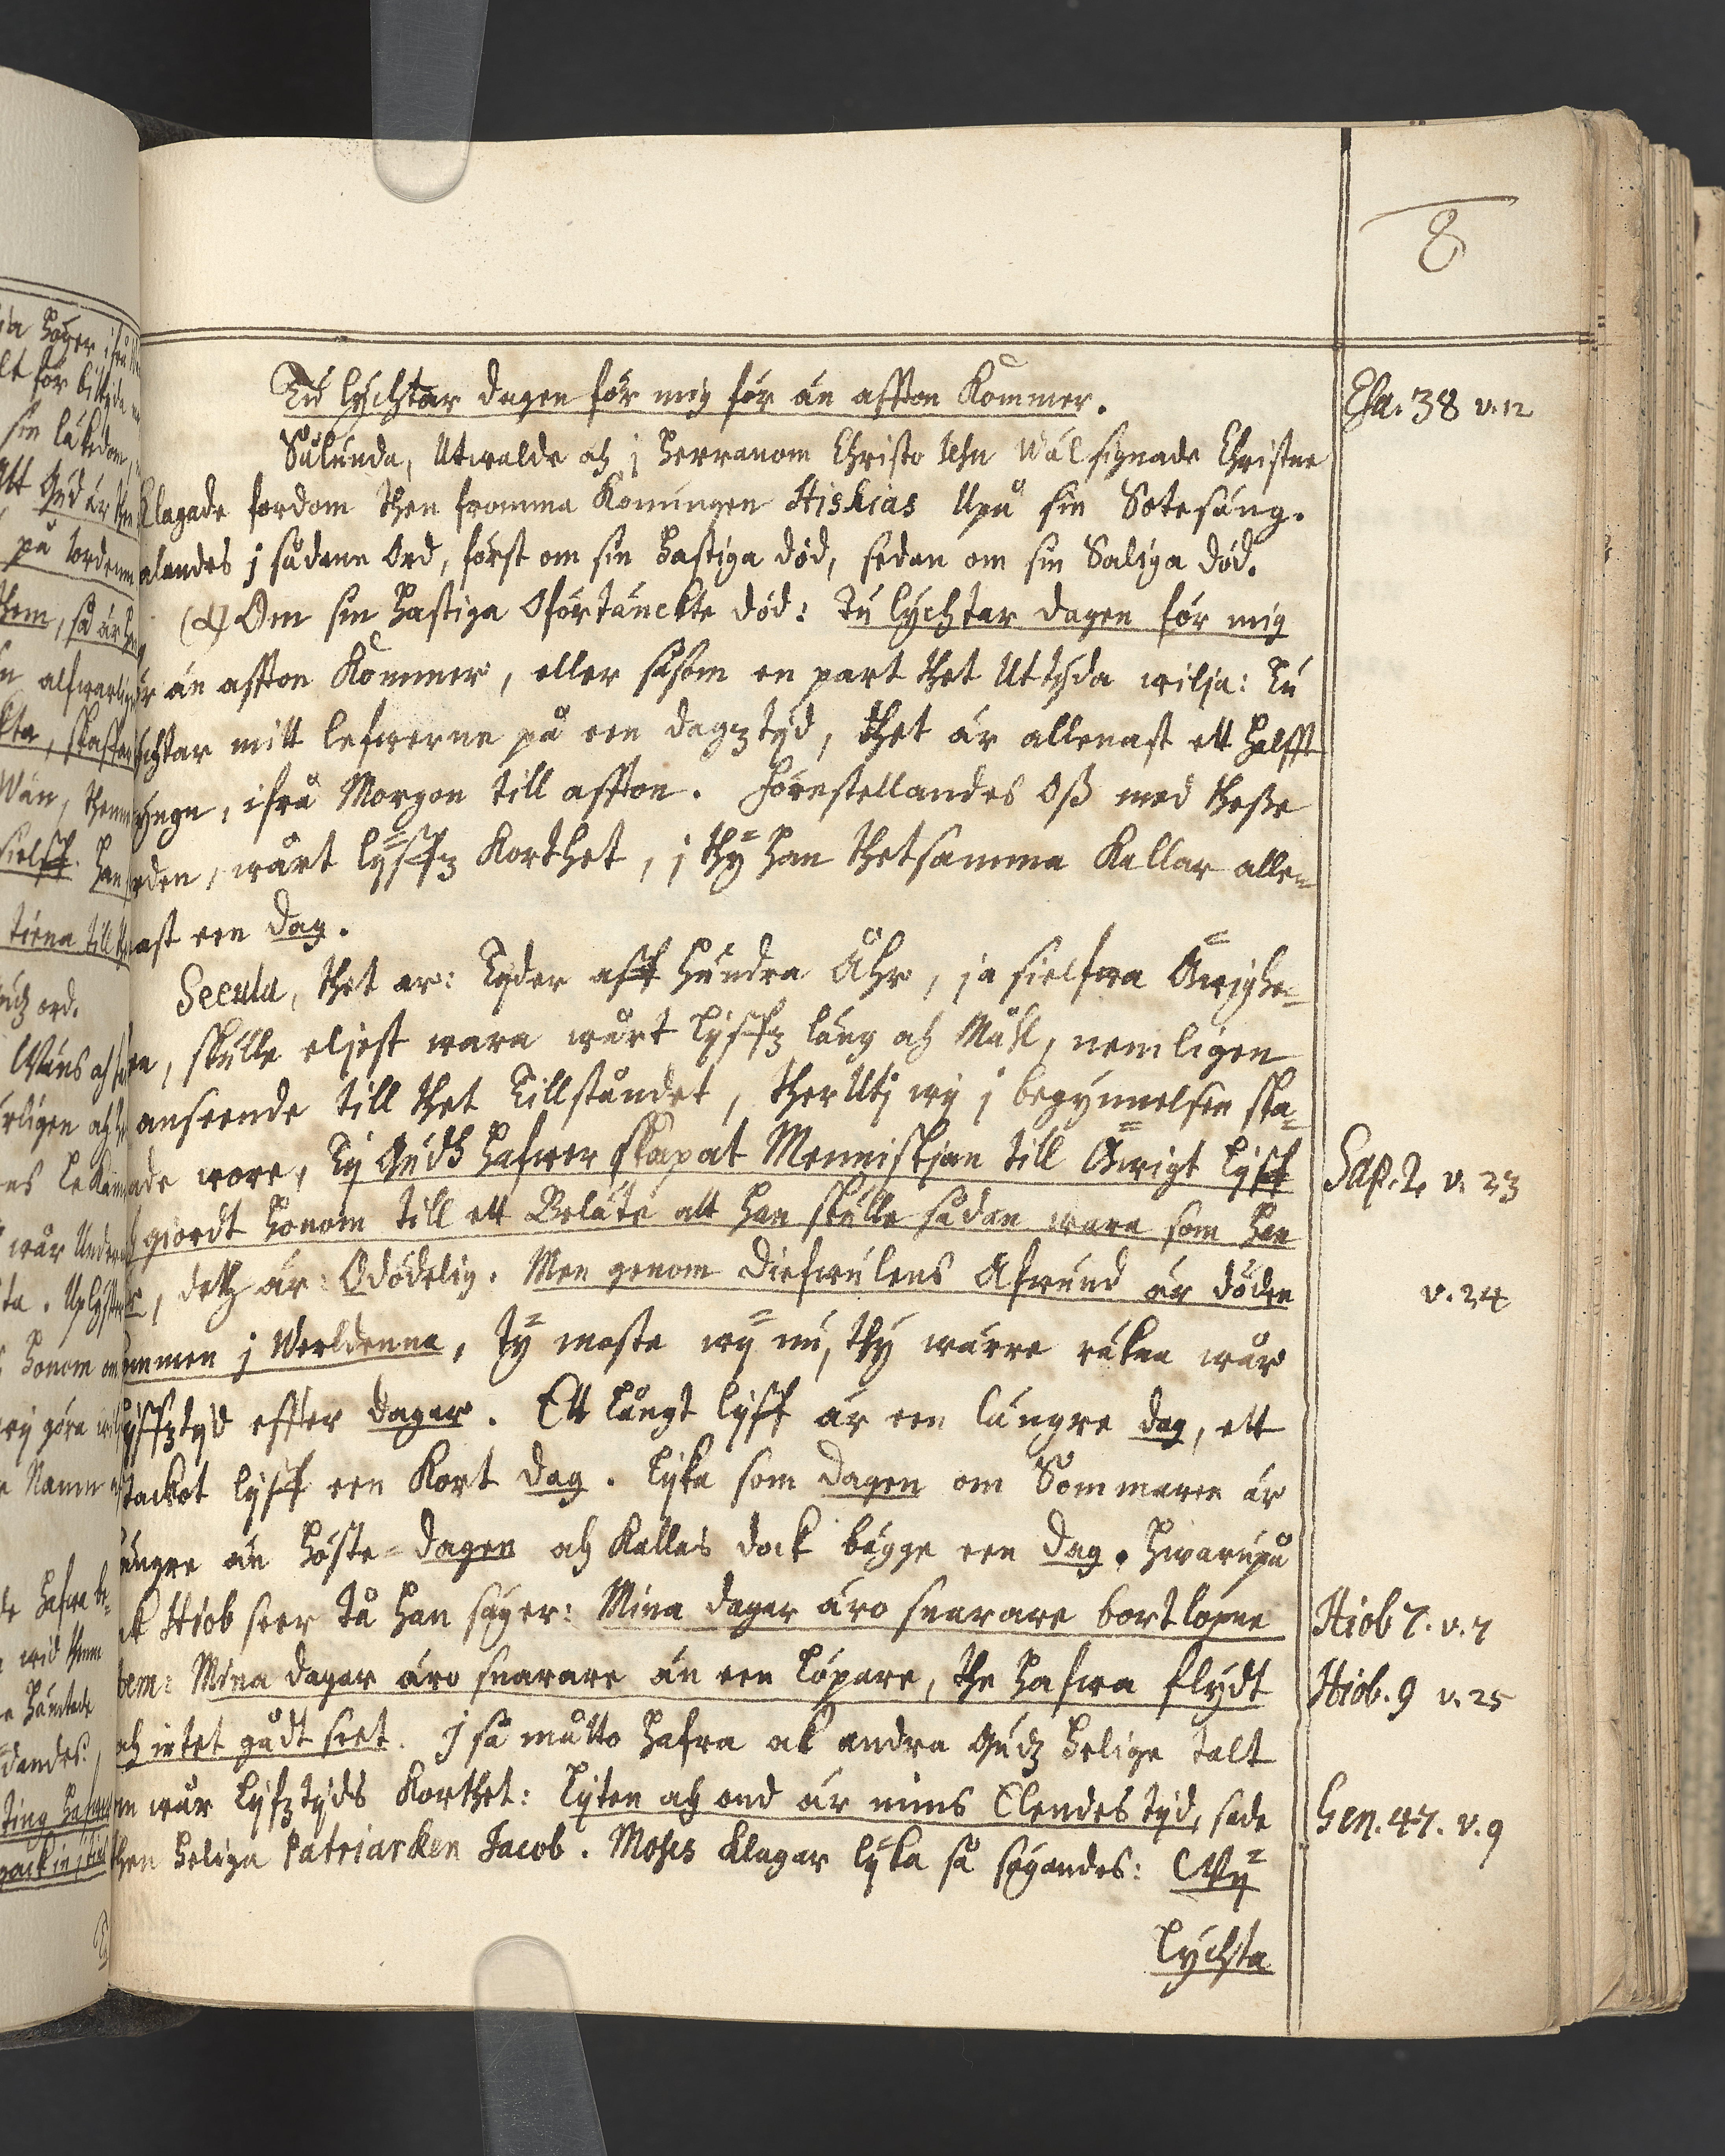 8
Tu lychtar dagen för mig för än affton Kommer.
Esa. 38 v. 12
Sålunda, Utwalde och j Herranom Christo Jesu Wälsignade Christne
Klagade fordom then fromma Konungen Hiskias Upå sin Sotesäng.
alandes j sådane Ord, först om sin hastiga död, sedan om sin Saliga död.
Om sin hastiga Oförtänckte död: Tu lychtar dagen för mig
ör än affton Kommer, eller såsom en part thet Uttyda wilja: Tu
chtar mitt lefwerne på een dagz tyd, thet är allenast ett halfft
hngn, ifrå Morgon till affton. Förestellandes Oß med theße
rden, wårt lyffz Korthet, j thy han thetsamma Kallar allen-
ast een dag.
Secula, thet är: Tyder aff hundra Åhr, ja sielfwa Äwighe-
en, skulle eljest wara wårt lyffz läng och Måhl, nemligen
anseende till thet Tillståndet, ther Utj wij j begynnelsen ska-
ade wore, Ty Gudh hafwer skapat Menniskjan till Äwigt lyff
Sap. 2. v. 23
giordt honom till ett Beläte att han skulle sådan wara som han
, detz är: Odödelig. Men genom Diefwulens Afwund är döden
v. 24
ommen j Werldenna, Ty moste wy nu, thy wärre räkna wår
lyffztyd effter dagar. Ett långt lyff är een längre dag, ett
tackot lyff een Kort dag. lyka som dagen om Sommaren är
ängre än höste-dagen och Kallas dock bägge een dag. Hwarupå
k Hiob seer Tå han säger: Mina dagar äro snarare bortlopne
Hiob 7. v. 7
tem: Mina dagar äro snarare än een löpare, the hafwa flydt
Hiob. 9 v. 25
och intet gådt seet. j så måtto hafwa ok andra Gudz helige talt
om wår lyfztyds Korthet: lyten och ond är mins Elendes tyd, sade
Gen. 47. v. 9
then heliga Patriarken Jacob. Moses klagar lyka så sägandes: Wy
lychta